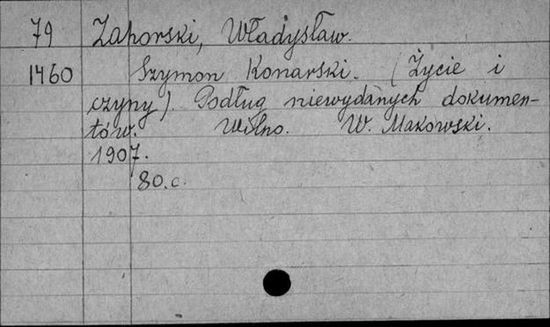 79 Zahorski, Władysław.
1460 Szymon Konarski. (Życie i
czyny). Podług niewydanych dokumen-
tów. Wilno. W. Makowski.
1907.
80. c.